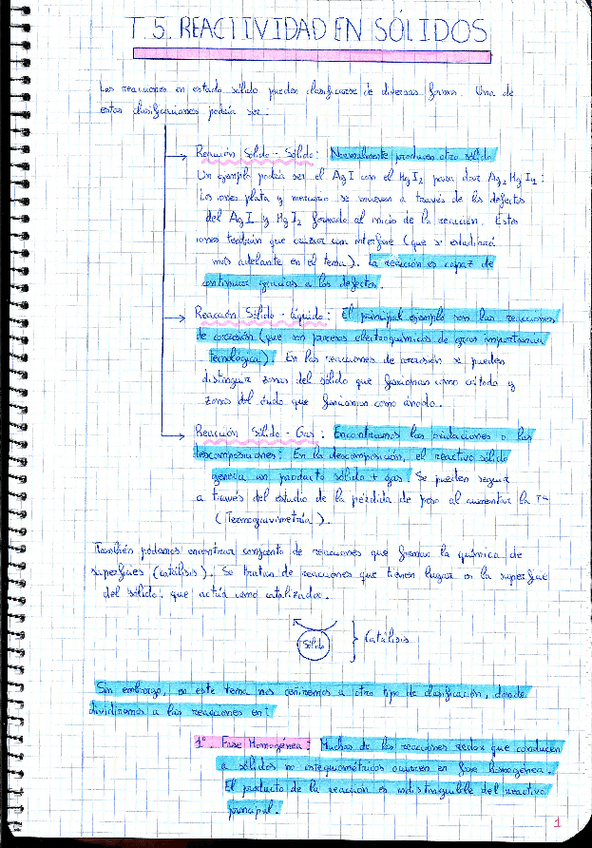 T.5. REACTIVIDAD EN SÓLIDOS
Las reacciones en estado sólido pueden clasificarse de diversas formas. Una de
estas clasificaciones podría ser:
Reacción Sólido - Sólido: Normalmente producen otro sólido
Un ejemplo podría ser el AgI con el HgI2 para dar Ag2HgI4:
Los iones plata y mercurio se mueven a través de los defectos
del AgI y HgI2 formado al inicio de la reacción. Estos
iones tendrán que cruzar una interfase (que se estudiará
más adelante en el tema). La reacción es capaz de
continuar gracias a los defectos.
Reacción Sólido - Líquido: El principal ejemplo son las reacciones
de corrosión (que son procesos electroquímicos de gran importancia
Tecnológica). En las reacciones de corrosión se pueden
distinguir zonas del sólido que funcionan como cátodo y
zonas del que funcionan como ánodo.
Reacción Sólido - Gas: Encontramos las oxidaciones o las
descomposiciones: En la descomposición, el reactivo sólido
genera un producto sólido + gas. Se pueden seguir
a través del estudio de la pérdida de peso al aumentar la Tª
(Termogravimetría).
También podemos encontrar conjunto de reacciones que forman la química de
superficies (catálisis). Se tratan de reacciones que tienen lugar en la superficie
del sólido que actúa como catalizador.
Sólido } Catálisis
Sin embargo, en este tema nos ceñiremos a otro tipo de clasificación, donde
dividiremos a las reacciones en:
1º. Fase Homogénea: Muchas de las reacciones redox que conducen
a sólidos no estequiométricos ocurren en fase homogénea.
El producto de la reacción es indistinguible del reactivo
principal.
1